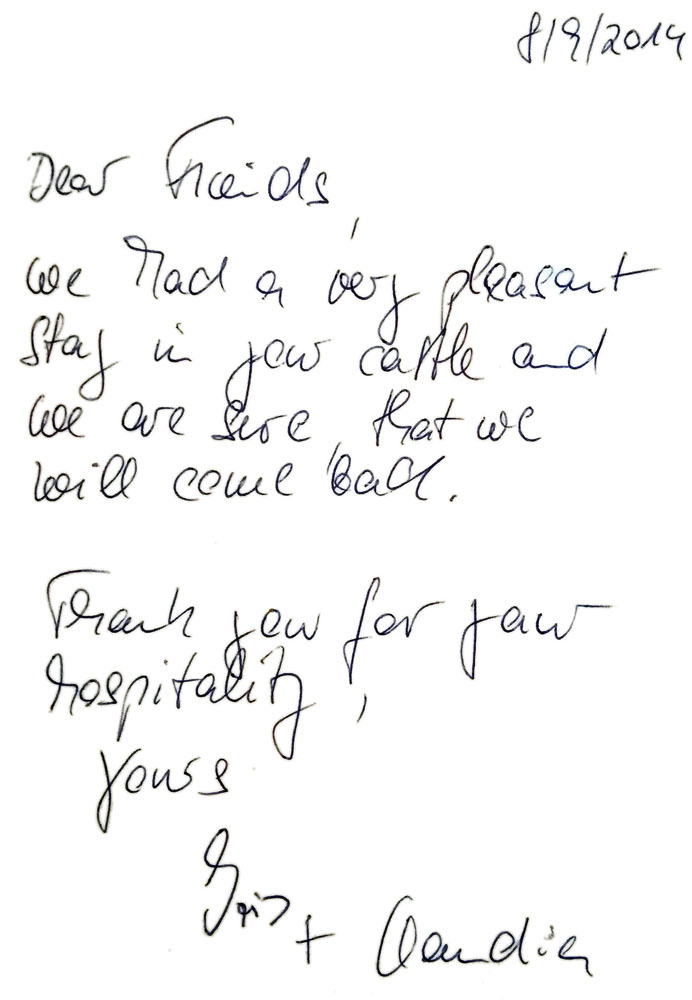 8/9/2014
Dear Freinds,
we had a very pleasant
stay in your castle and
we are sure, that we
will come back.
Thank you for your
hospitality,
Yours
+ Claudia